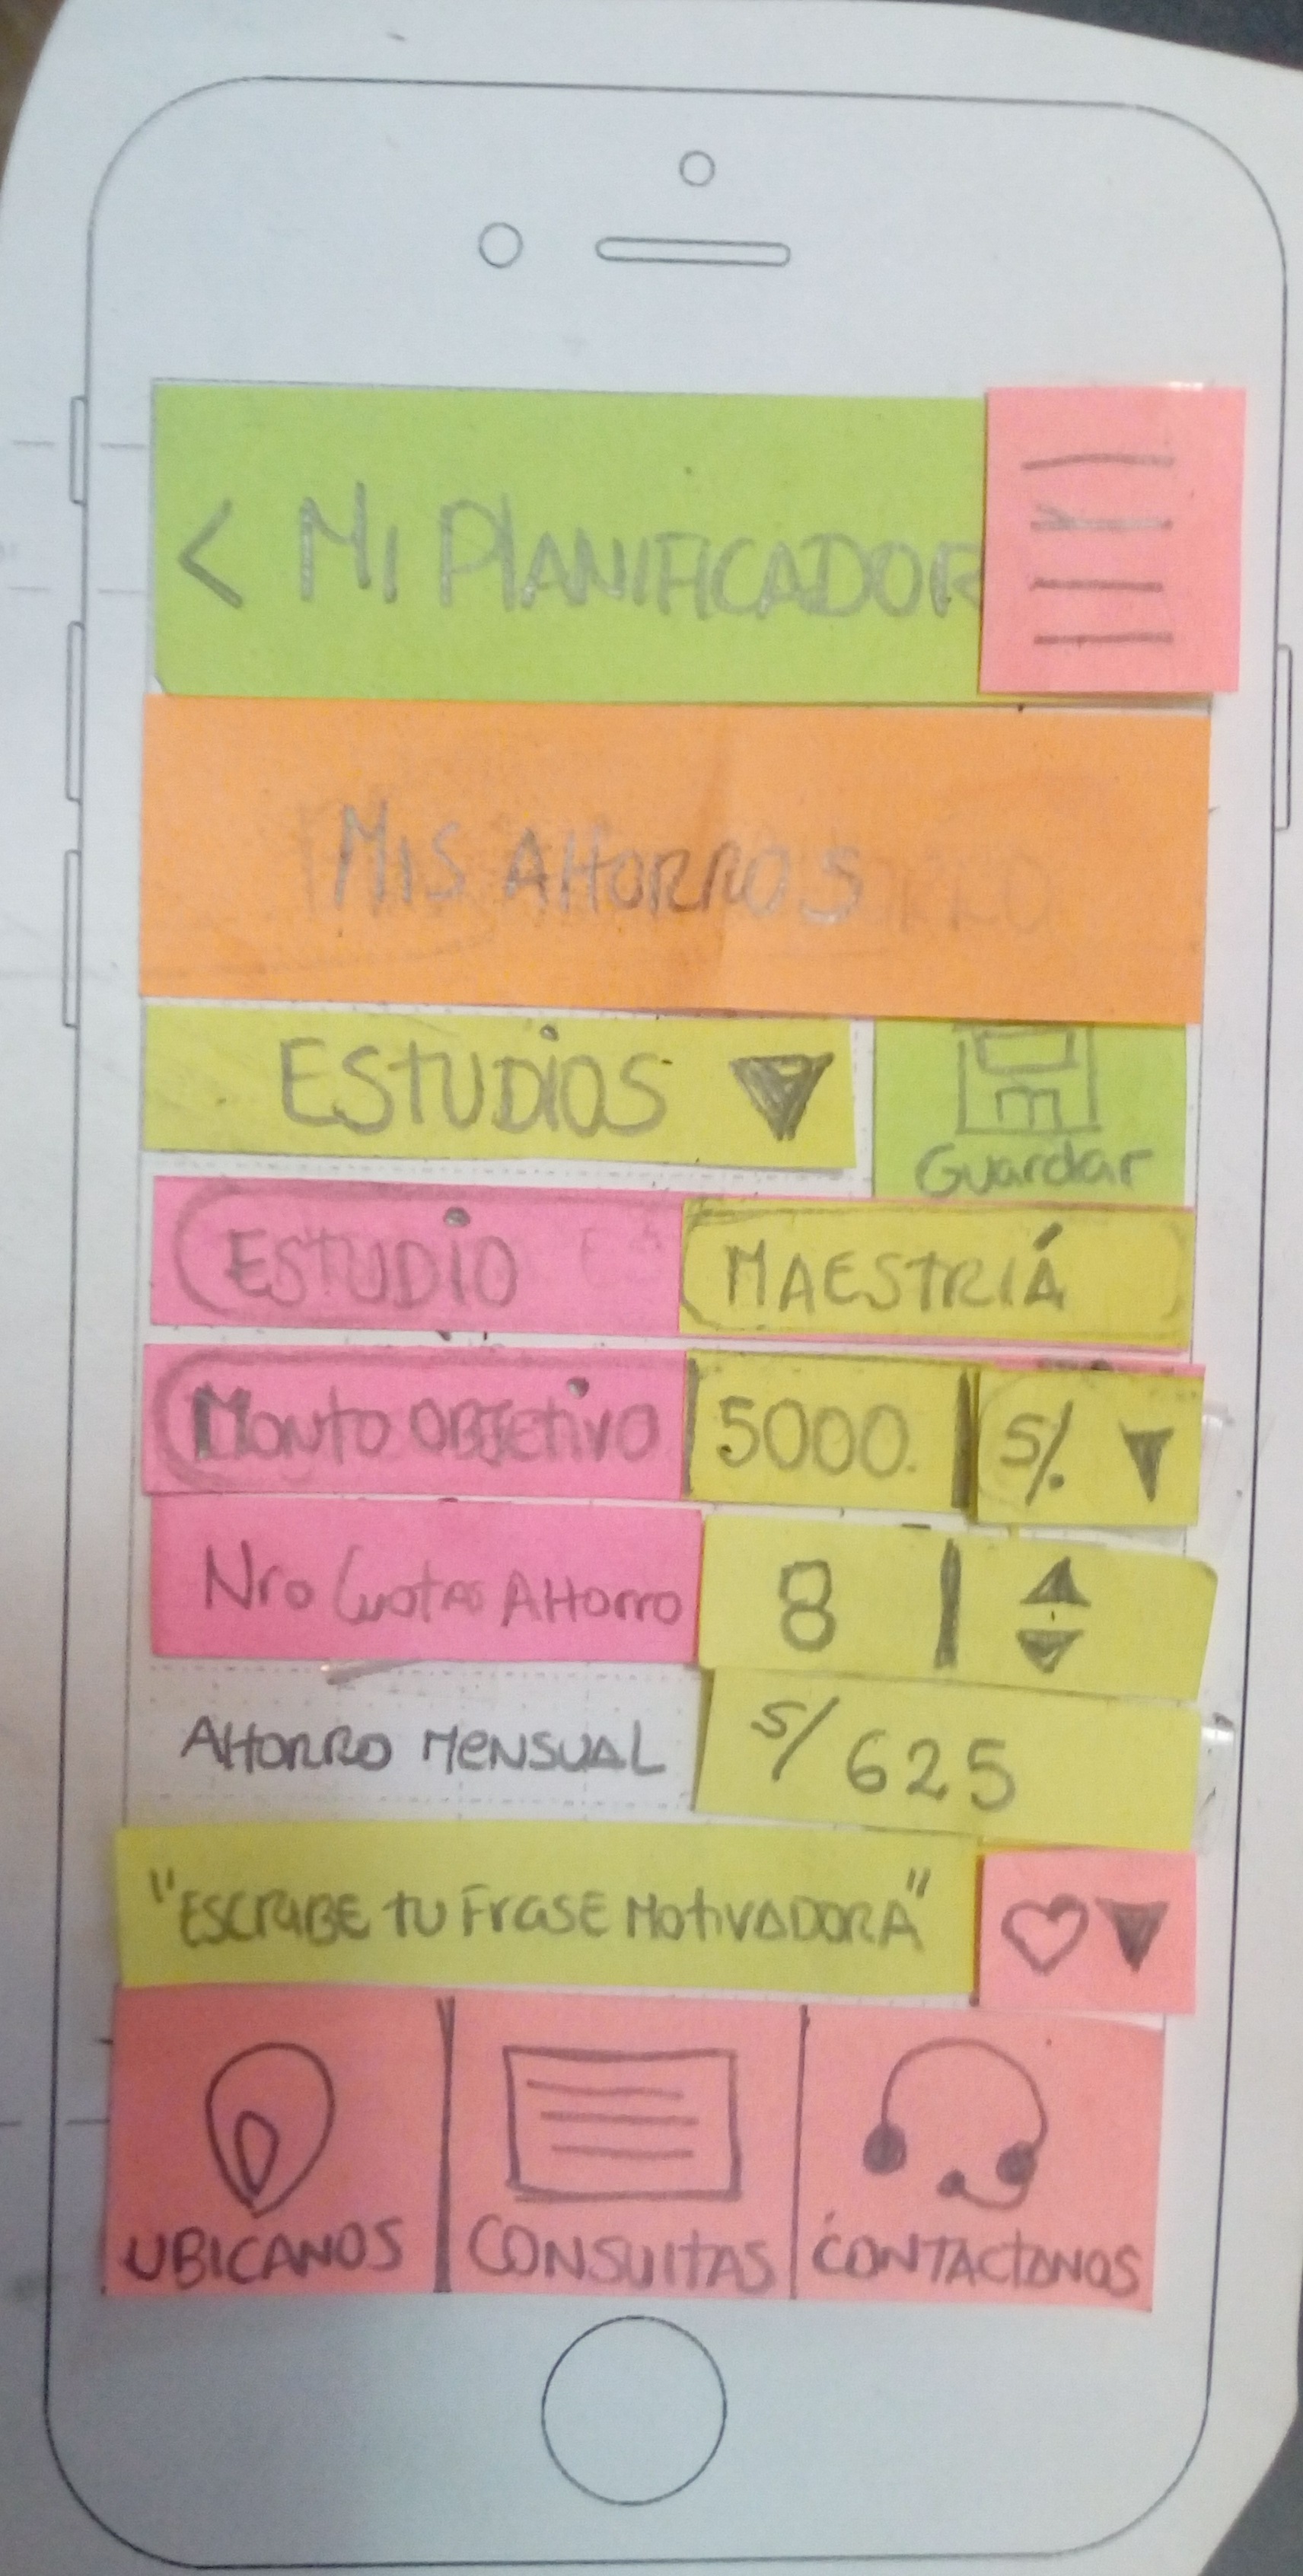 < Mi PlANIFICADOR
MIS AHORROS
ESTUDiOS
Guardar
ESTUDiO MAESTRIÁ
Monto OBJEtivo 5000. S/.
Nro Cuotas AHorro 8
AHORRO MENSUAL S/ 625
"ESCRIBE tU FraSE MotivADORA"
UBICANOS CONSUltAS CONTACtANOS